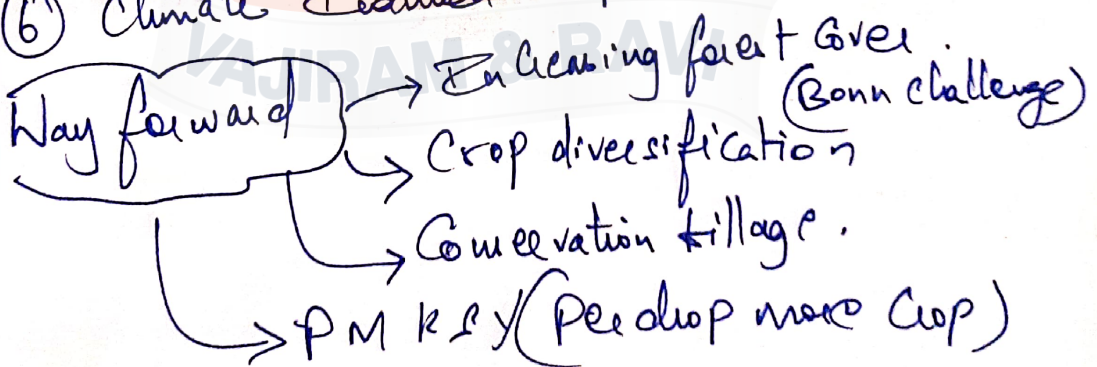 ⑥ Climate
VAJIRAM & RAVI
Way forward → Increasing forest Cover.
(Bonn challenge)
→ Crop diversification
→ Conservation tillage.
→ PMKSY (Per drop more Crop)